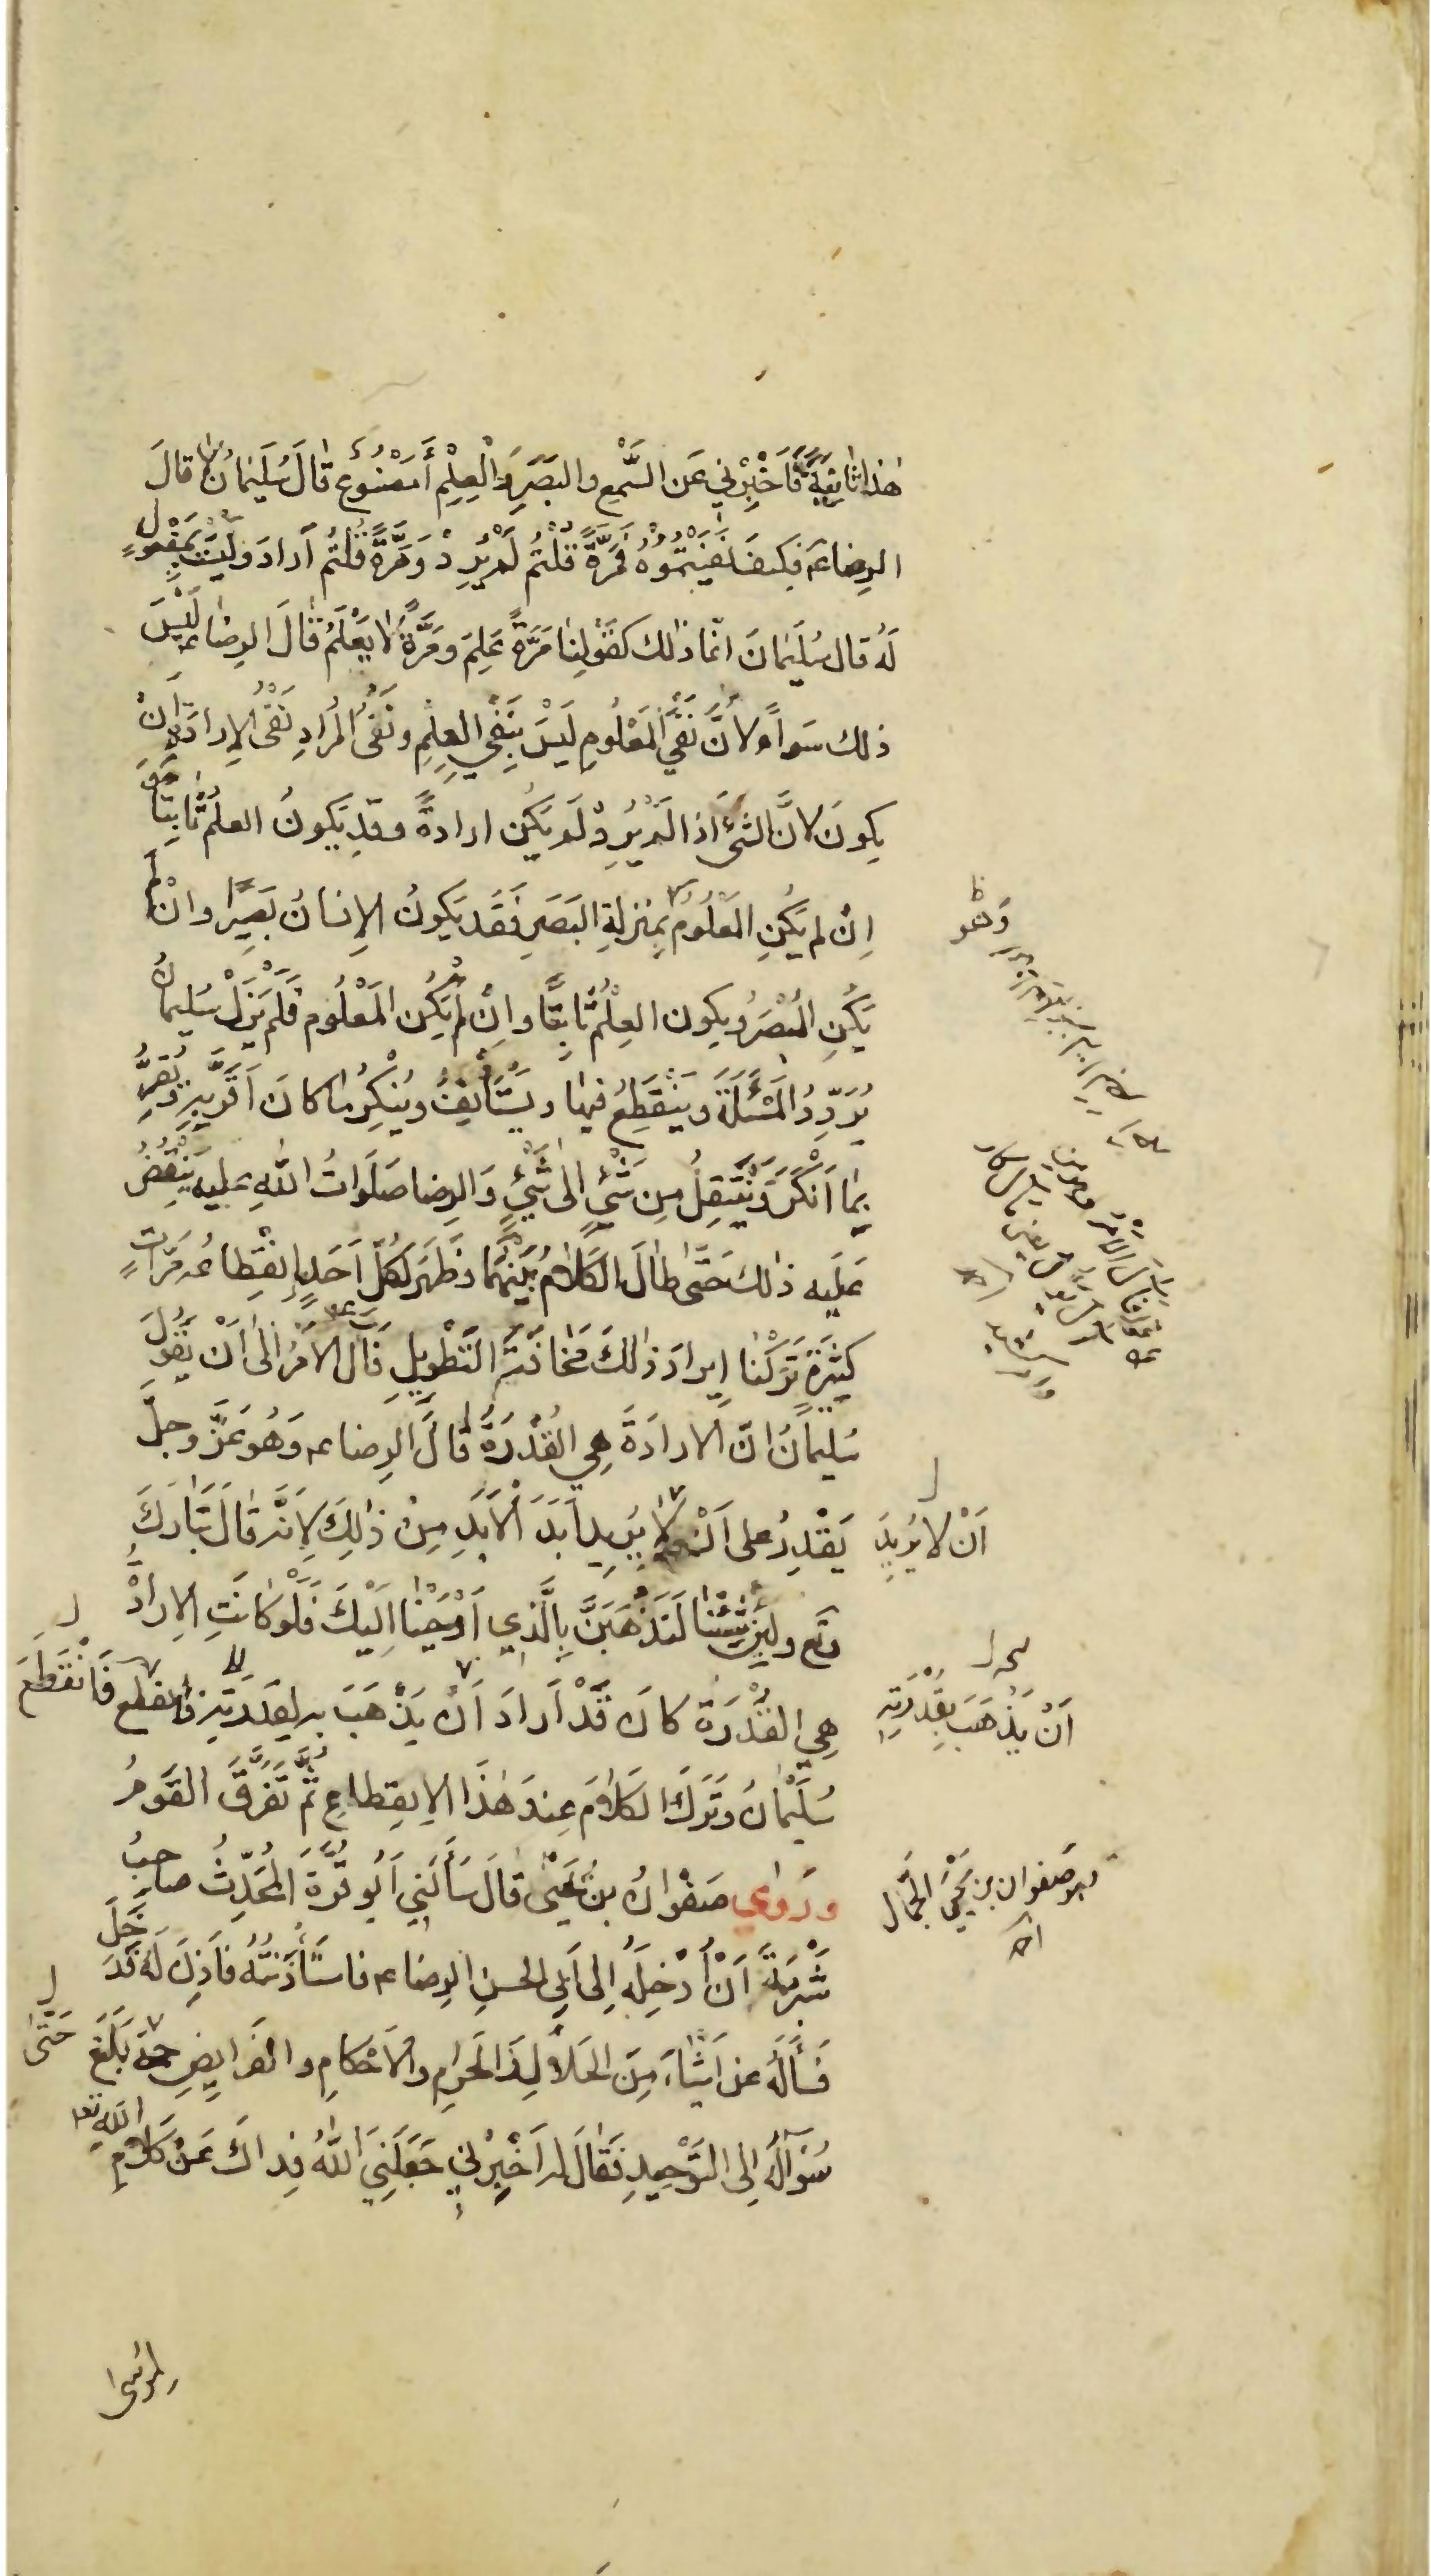 هذا ثانية فَأَخْبِرْني عَن السَّمْعِ والبَصَرِ وَالْعِلْمِ أَمَصْنُوعٌ قالَ سُلَيْمانُ لا قالَ
الرضا عـ فكيفَ نَفَيْتُمُوهُ فَمَرَّةً قُلْتُمْ لَمْ يُرِدْ وَمَرَّةً قُلْتُمْ أَرادَ وَلَيْسَتْ بِمَفْعُولٍ
لَهُ قال سُلَيْمانَ انّما ذلك كقَوْلِنا مَرَّةً عَلِمَ ومَرَّةً لا يَعْلَمُ قالَ الرضا عـ لَيْسَ
ذلك سَواءً لأَنَّ نَفْيَ الْمَعْلُومِ لَيْسَ بِنَفْيِ العِلْمِ ونَفْيُ المُرادِ نَفْيُ الإرادَةِ أَنْ
يكونَ لانَّ الشَّيْءَ اذا لَمْ يُرِدْ لَمْ يَكُن ارادةً وقد يَكونُ العلمُ ثابِتًا
اِنْ لم يَكُنِ المَعْلُومُ بِمَنزلةِ البَصَرِ فَقَد يَكونُ الإنسانُ بَصِيرًا وانْ لم
يَكُنِ المُبْصَرُ ويكون العِلْمُ ثابِتًا وانْ لَمْ يَكُنِ المَعْلُوم فَلَمْ يَزَلْ سُليمانُ
يُرَدِّدُ المَسْئَلَةَ ويَنْقَطِعُ فيها ويَسْتَأْنِفُ ويُنْكِرُ ما كانَ أَقَرَّ بِهِ وَيُقِرُّ
بِما أَنْكَرَ وَيَنْتَقِلُ مِن شَيْءٍ الى شَيْءٍ وَالرضا صَلَواتُ اللهِ عليه يَنْقُضُ
عَلَيه ذلكَ حَتّى طالَ الكَلامُ بَيْنَهُما وظَهَرَ لِكُلِّ أَحَدٍ انقِطاعُه مَرّاتٍ
كَثِيرَةً تَرَكْنا إيرادَ ذلكَ مَخافَةَ التَّطْوِيلِ فَآلَ الامْرُ الى أَنْ يَقُولَ
سُليمانُ انّ الارادَةَ هي القُدْرَةُ قالَ الرضا عـ وَهُوَ عَزَّ وجلَّ
يَقْدِرُ على أَنْ لا يُرِيدَ أَبَدَ الْأَبَدِ مِنْ ذلِكَ لِأَنَّه قالَ تَبَارَكَ
أَنْ لا يُرِيدَ
وتَع ولَئِنْ شِئْنا لَنَذْهَبَنَّ بِالَّذِي أَوْحَيْنا اِلَيْكَ فَلَوْ كانَتِ الارادَةُ
هِيَ القُدْرَةَ كانَ قَدْ أَرادَ أَنْ يَذْهَبَ بِه لِقُدرَتِه فانقطع فَانْقَطَعَ
أَنْ يَذْهَبَ بِقُدْرَتِهِ
سُلَيْمانُ وتَرَكَ الكَلامَ عِندَ هَذا الانقِطاعِ ثُمَّ تَفَرَّقَ القَومُ
ورَوى صَفْوانُ بنُ يَحْيَى قالَ سَأَلَنِي أَبُو قُرَّةَ المُحَدِّثُ صاحبُ
هو صَفوان بن يَحْيَى الجَمّال
شُبْرُمَةَ أَنْ أُدْخِلَهُ إلى أبي الحسنِ الرضا عـ فاستَأْذَنْتُهُ فأَذِنَ لَه فَدَخَلَ
فَسَأَلَه عن أشياءَ مِنَ الحَلالِ والحَرامِ والأَحْكامِ والفَرايِضِ حتى بَلَغَ
حَتّى
سُؤَالُه إلى التَّوْحِيدِ فَقالَ له أَخْبِرْني جَعَلَنِيَ اللهُ فِداكَ عَنْ كَلامِ الله تع
لموسى